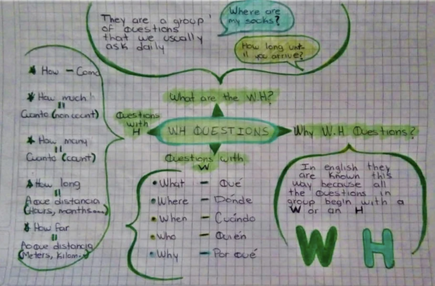 They are a group
of questions
that we usually
ask daily
Where are
my socks?
How long until
you arrive?
What are the W.H?
WH QUESTIONS
Questions
with
H
★ How - Como
★ How much
=
Cuanto (non count)
★ How many
=
Cuanto (count)
★ How long
=
A que distancia
(Hours, months...)
★ How Far
=
A que distancia
(Meters,
Questions with
W
• What - Qué
• Where - Dónde
• When - Cuándo
• Who - Quién
• Why - Por Qué
Why W.H Questions?
In english they
are known this
way because all
the questions in
group begin with a
W or an H
W H